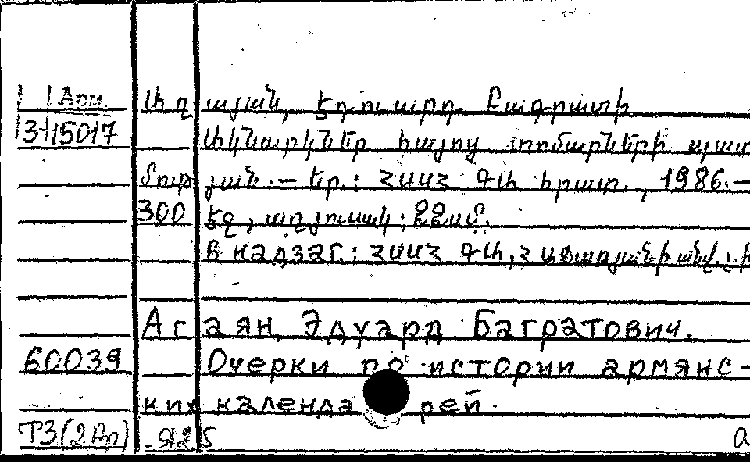 Арм. Աղայան, Էդուարդ Բագրատի
3-15017 Ակնարկներ հայոց տոմարների պատ
մութ յան. — Եր.: ՀՍՍՀ ԳԱ հրատ., 1986.—
300 էջ, աղյուսակ; 22սմ.
В надзаг.: ՀՍՍՀ ԳԱ, Հ.
Агаян, Эдуард Багратович.
60039 Очерки по истории армянс-
ких календарей.
Т3(2Ар) -Я25 а